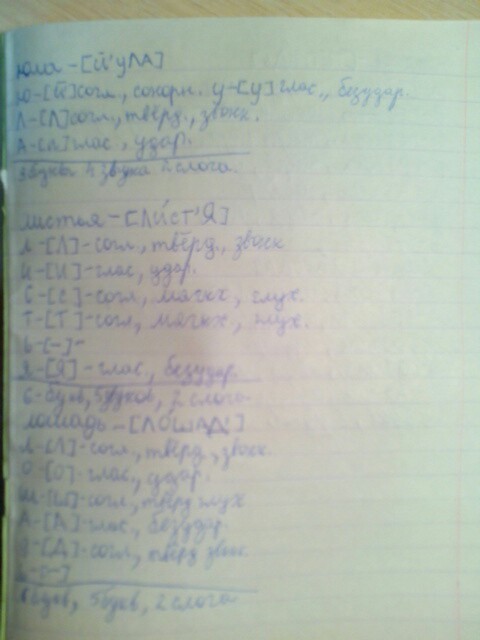 юла - [й'уЛА]
Ю-[й] согл., сонорн. у-[у] глас., безудар.
Л-[Л] согл., твёрд., звонк.
А-[А] глас., удар.
3 буквы 4 звука 2 слога.
листья - [ЛИ́СТ'Я]
Л-[Л]-согл., твёрд., звонк
И-[И]-глас, удар.
С-[С]-согл, мягкх, глух.
Т-[Т]-согл, мягкх, глух.
Ь-[-]-
Я-[Я]-глас, безудар.
6-букв, 5 2 слога
лошадь - [ЛОШАД']
Л-[Л]-согл, твёрд, звонк.
О-[О]-глас, удар.
Ш-[Ш]-согл, твёрд глух
А-[А]-глас, безудар
Д-[Д]-согл, твёрд звонк
Ь-[-]
6 букв, 5 букв, 2 слога